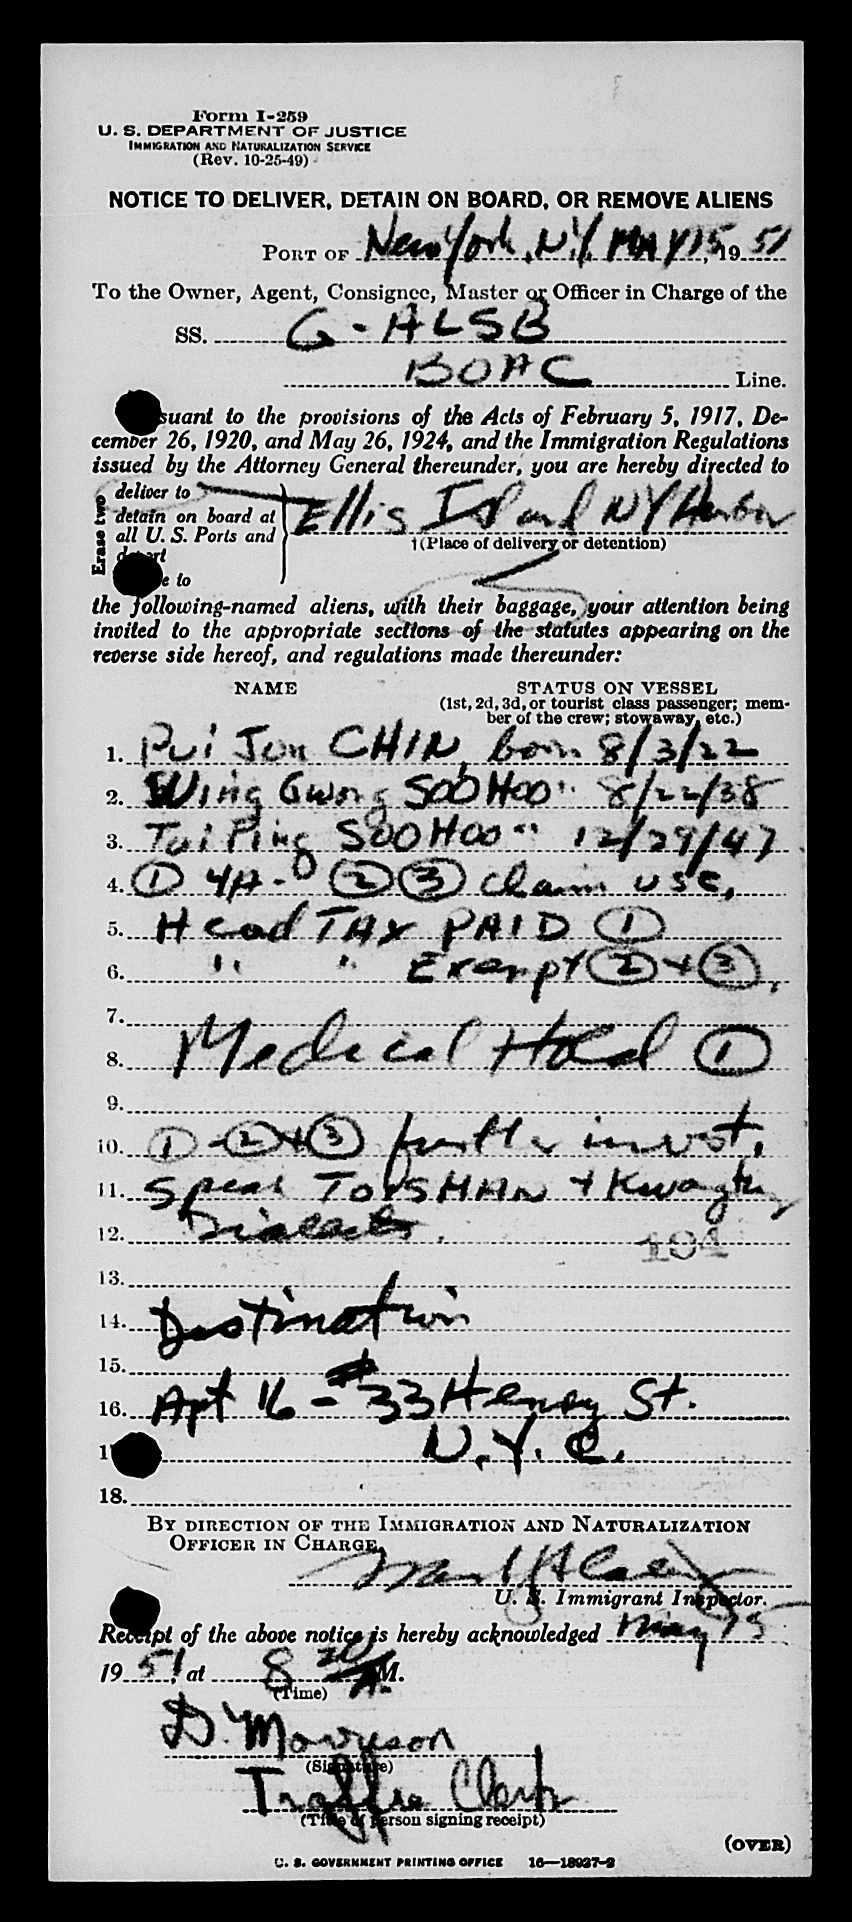 Form I-259
U. S. DEPARTMENT OF JUSTICE
IMMIGRATION AND NATURALIZATION SERVICE
(Rev. 10-25-49)
NOTICE TO DELIVER, DETAIN ON BOARD, OR REMOVE ALIENS
PORT OF New York, N.Y. MAY 15, 1951
To the Owner, Agent, Consignee, Master or Officer in Charge of the
SS. G-ALSB
BOAC Line.
suant to the provisions of the Acts of February 5, 1917, De-
cember 26, 1920, and May 26, 1924, and the Immigration Regulations
issued by the Attorney General thereunder, you are hereby directed to
Erase two
deliver to
detain on board at
all U. S. Ports and
e to
Ellis Island NY Harbor
†(Place of delivery or detention)
the following-named aliens, with their baggage, your attention being
invited to the appropriate sections of the statutes appearing on the
reverse side hereof, and regulations made thereunder:
NAME STATUS ON VESSEL
(1st, 2d, 3d, or tourist class passenger; mem-
ber of the crew; stowaway, etc.)
1. Pui Jun CHIN, born 8/3/22
2. Wing Gwong SOOHOO " 8/22/38
3. Tai Ping SOOHOO " 12/29/47
4. ① 4A- ② ③ claim USC,
5. Head TAX PAID ①
6. " " Exempt ② + ③,
7.
8. Medical Hold ①
9.
10. ① - ② + ③ further invest.
11. Speak TOYSHAN + Kwangtung
12. Dialects. 194
13.
14. Destination
15.
16. Apt 16 - #33 Henry St.
1 N.Y.C.
18.
BY DIRECTION OF THE IMMIGRATION AND NATURALIZATION
OFFICER IN CHARGE,
U. S. Immigrant Inspector.
Receipt of the above notice is hereby acknowledged May 15
1951, at 8 30 A.M.
(Time)
D. Morrison
(Signature)
Traffic Clerk
(Title of person signing receipt)
(OVER)
U. S. GOVERNMENT PRINTING OFFICE 16—18937-2